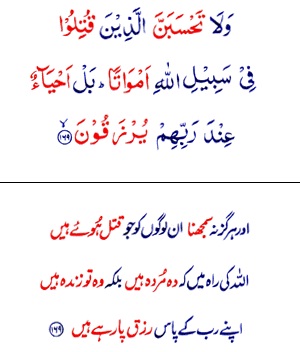 وَلَا تَحْسَبَنَّ الَّذِيْنَ قُتِلُوْا
فِىْ سَبِيْلِ اللهِ اَمْوَاتًا ؕ بَلْ اَحْيَآءٌ
عِنْدَ رَبِّهِمْ يُرْزَقُوْنَ ۙ﴿۱۶۹﴾
اور ہرگز نہ سمجھنا ان لوگوں کو جو قتل ہُوئے ہیں
اللہ کی راہ میں کہ وہ مُردہ ہیں بلکہ وہ تو زندہ ہیں
اپنے رب کے پاس رزق پا رہے ہیں ﴿۱۶۹﴾